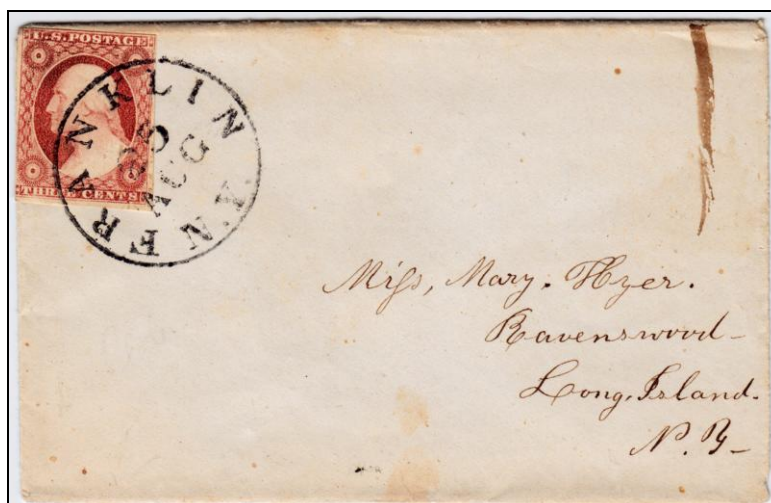 U.S. POSTAGE
THREE CENTS
FRANKLIN N.Y
25
AUG
Miſs, Mary. Hyer.
Ravenswood-
Long. Island.
N. Y-